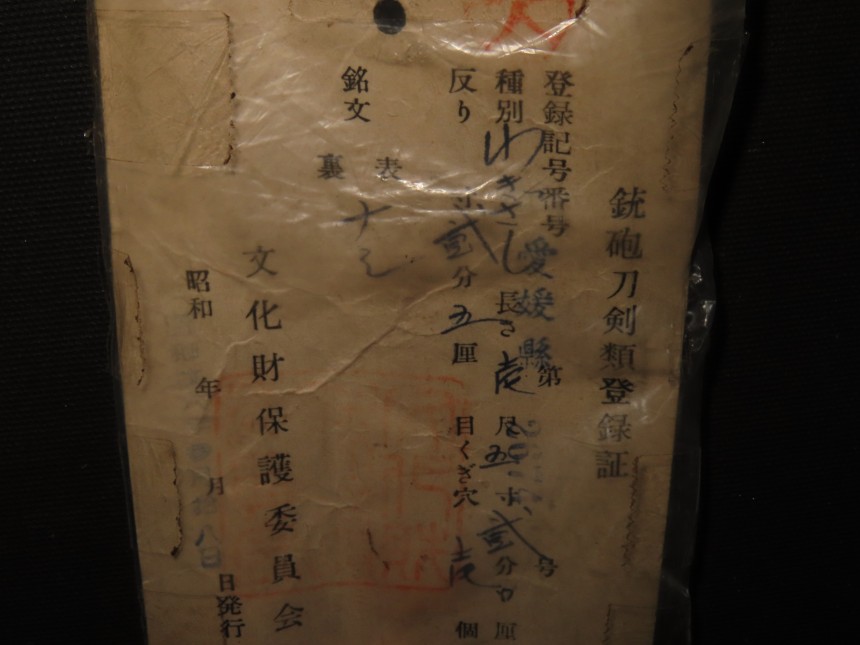 銃砲刀剣類登録証
登録記号番号 愛媛縣 第 号
種別 わきさし 長さ 壱尺五寸弐分 厘
反り 寸弐分五厘 目くぎ穴 壱個
銘文 表 ナシ
裏
文化財保護委員会
昭和 年 月 八日 日発行